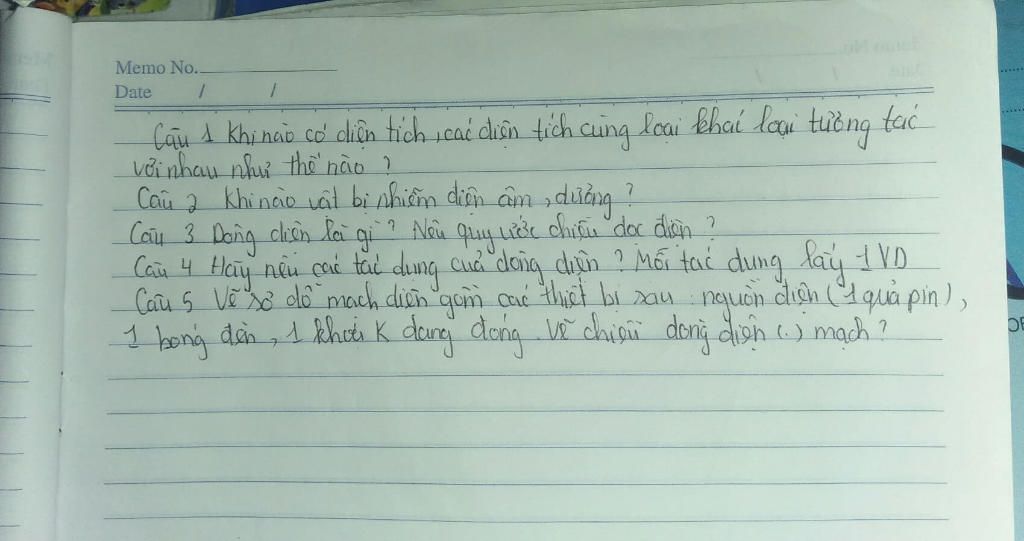 Memo No.
Date / /
Câu 1 Khi nào có điện tích, các điện tích cùng loại khác loại tương tác
với nhau như thế nào ?
Câu 2 Khi nào vật bị nhiễm điện âm, dương ?
Câu 3 Dòng điện là gì ? Nêu quy ước chiều dòc điện ?
Câu 4 Hãy nêu các tác dụng cuả dòng điện ? Mỗi tác dụng lấy 1 VD
Câu 5 Vẽ sơ đồ mạch điện gồm các thiết bị sau : nguồn điện ( 1 quả pin ) ,
1 bóng đèn , 1 khoá K đang đóng. Vẽ chiều dòng điện (.) mạch ?